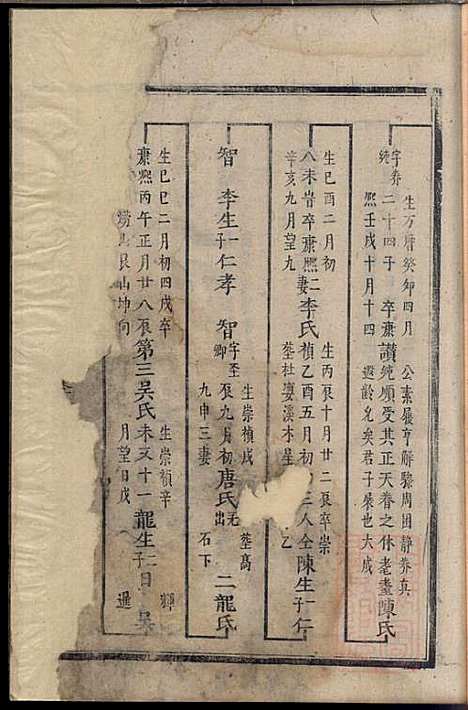 字养 生万曆癸卯四月 公素履亨鮮驗周困静养真
純 二十四子 卒康 讃純順受其正天眷之休老臺陳氏
熙壬戌十月十四 遐齡允矣君子展也大成
生己酉二月初 生丙辰十月廿二辰卒崇
八未旹卒康熙二妻李氏禎乙酉五月初 三人全陳生一子仁
辛亥九月望九 塟社婆溪木星 乙
智 李生一子仁孝 智字至卿 辰九月初唐氏无出 二龍氏
生崇禎戊 塟髙
九申三妻 石下
生己巳二月初四戌卒 生崇禎辛
康熙丙午正月廿八辰第三吴氏未又十一龍生二子日 吴
艮山坤向 月望日戌 暹